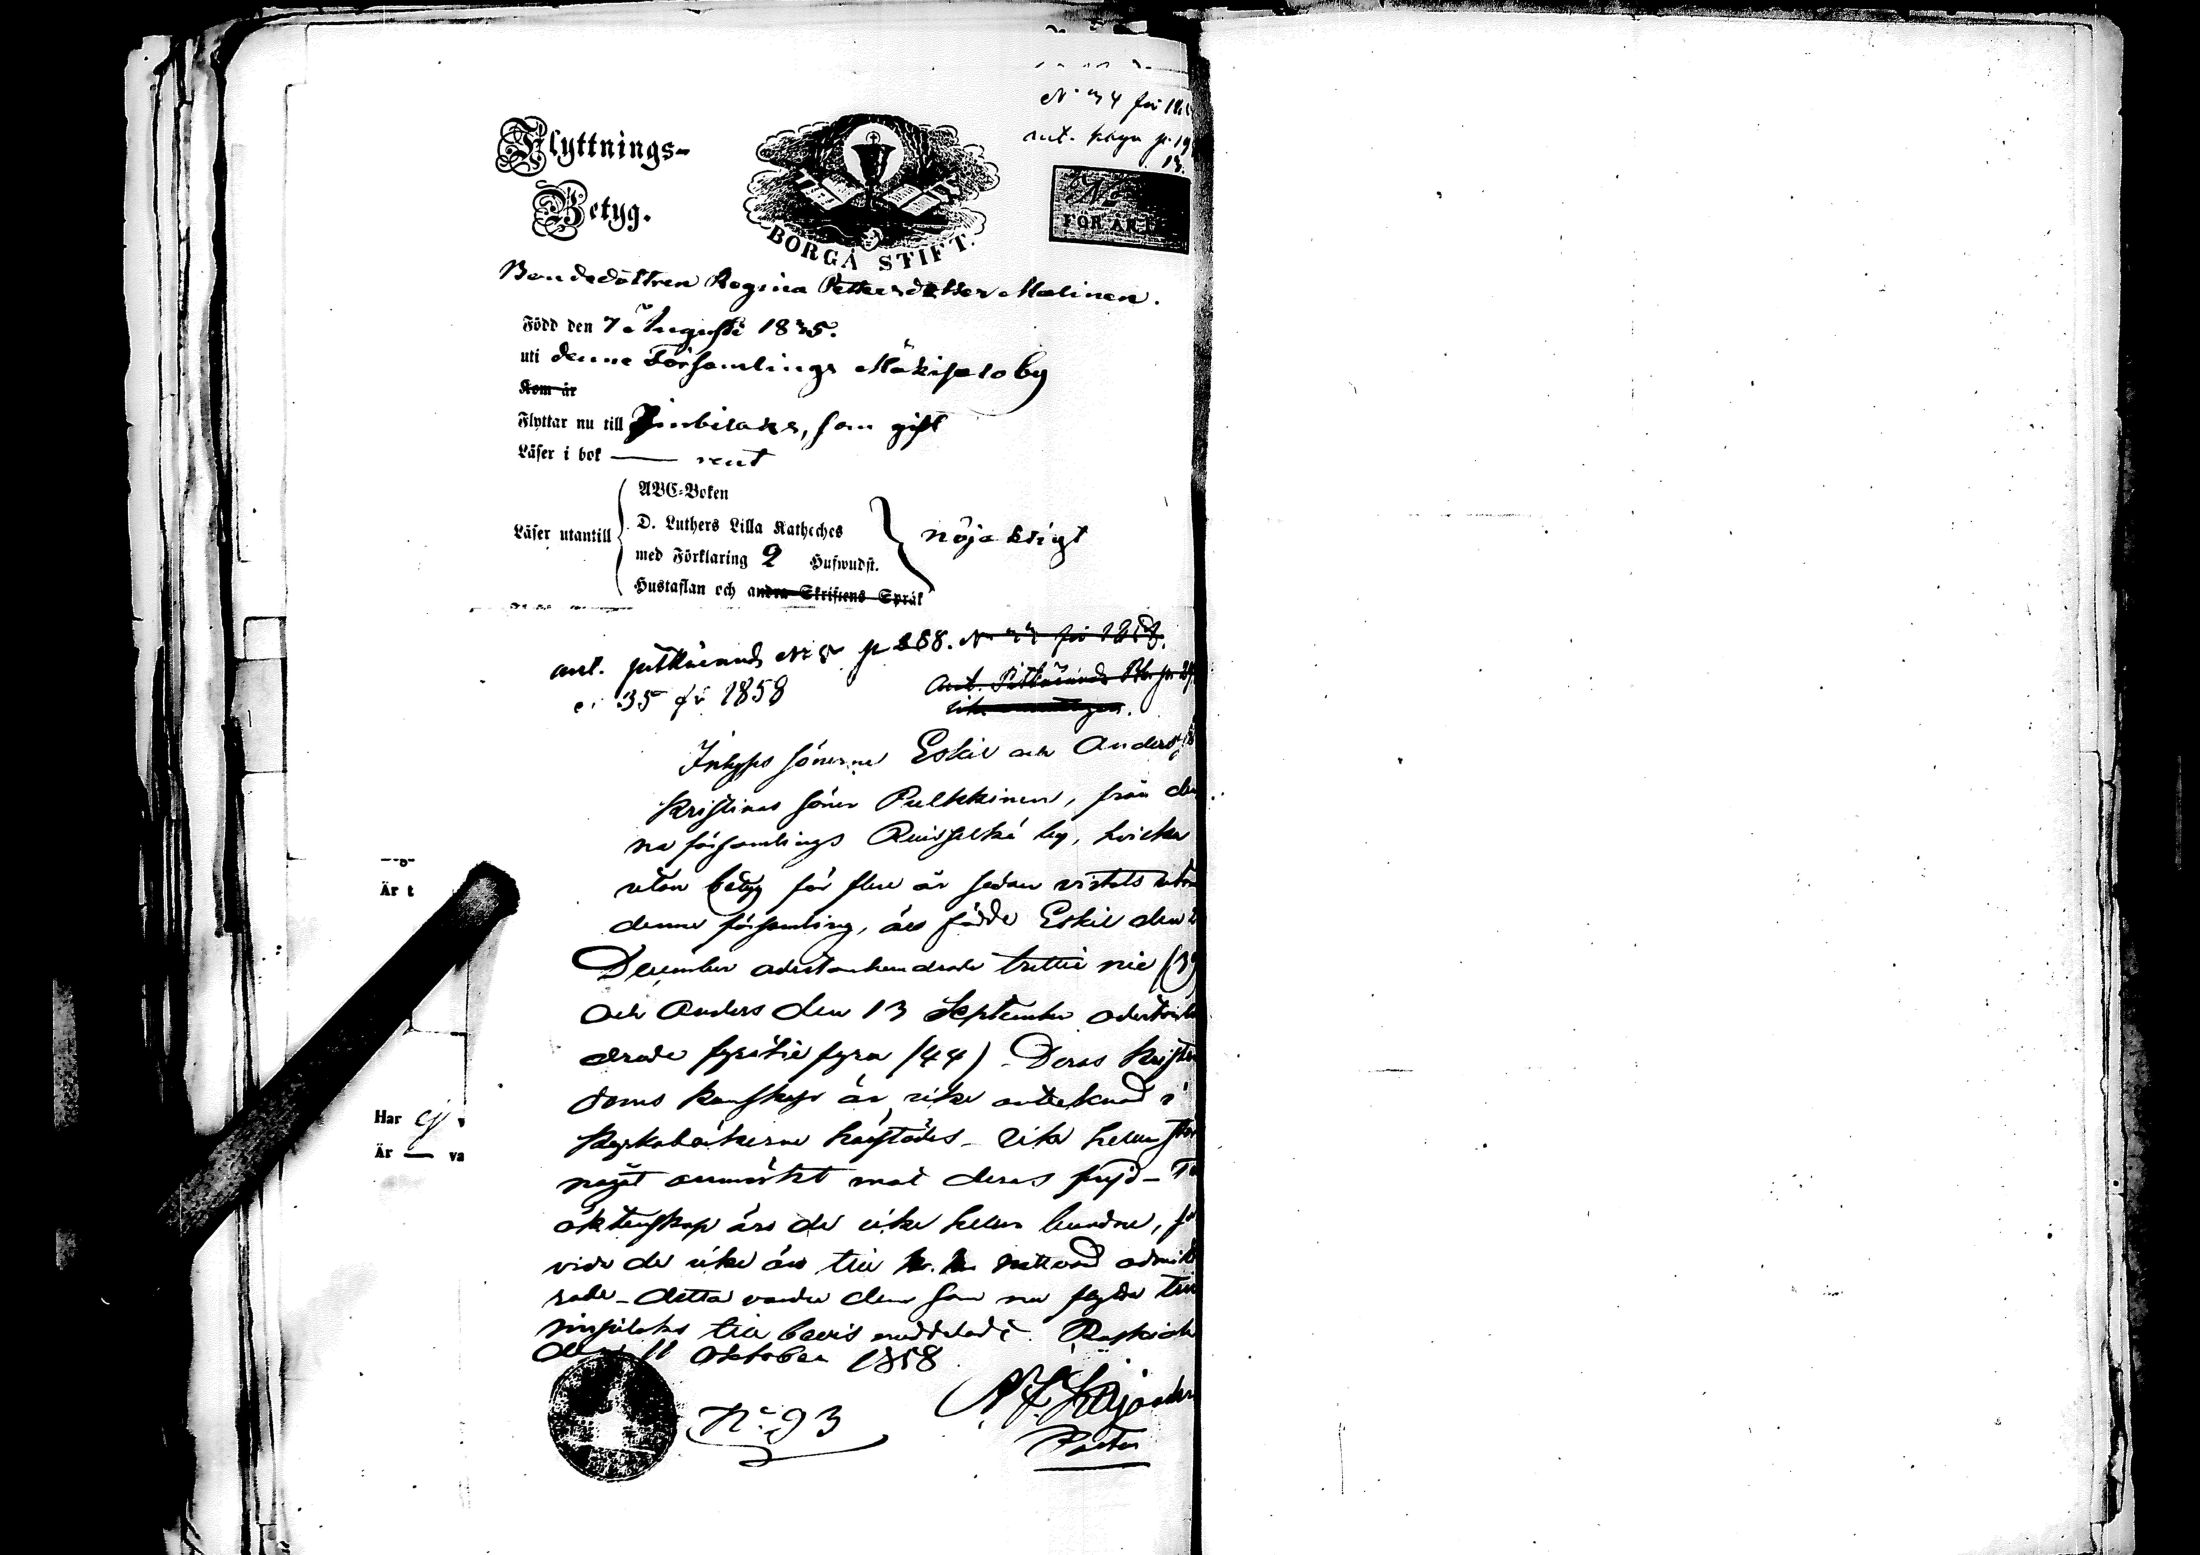 N:o 34 för
ant. p. 19
13.
Flyttnings-
Betyg.
BORGÅ STIFT.
No
FÖR ÅR 1
Bondedottren Regina Pettersdotter Malinen.
Född den 7 Augusti 1835.
uti denne Församlings Mäkisalo by
Kom år
Flyttar nu till Imbilaks, som gift
Läser i bok — rent
Läser utantill
ABC-Boken
D. Luthers Lilla Katheches
med Förklaring 2 Hufwudst.
Hustaflan och andra Skriftens Språk
nöjaktigt
ant. Pitkäranda N:o 5 p 288. N:o för 1858.
35 för 1858
Ant. Pitkäranda
Inhyses sönerne Eskil och Anders
Kristians söner Pulkkinen, från den
na församlings Ruisselkä by, hvilka
utan betyg för flere år sedan vistats utom
denne församling, äro födde Eskil den 2
December adertonhundrade trettio nio (39)
och Anders den 13 September adertonhun
drade fyratio fyra (44) - Deras Kristen
doms kunskap är icke antecknad i
Kyrkoböckerne härstädes - icke heller
något anmärkt mot deras frejd -
äktenskap äro de icke heller bundne, så
vida de icke äro till h. h. nattvard admitte
rade - detta varder dem som nu flytta till
Impilaks till bevis meddeladt.
den 11 Oktober 1858
N:o 93
Pastor
Är t
Har ej v
Är — va